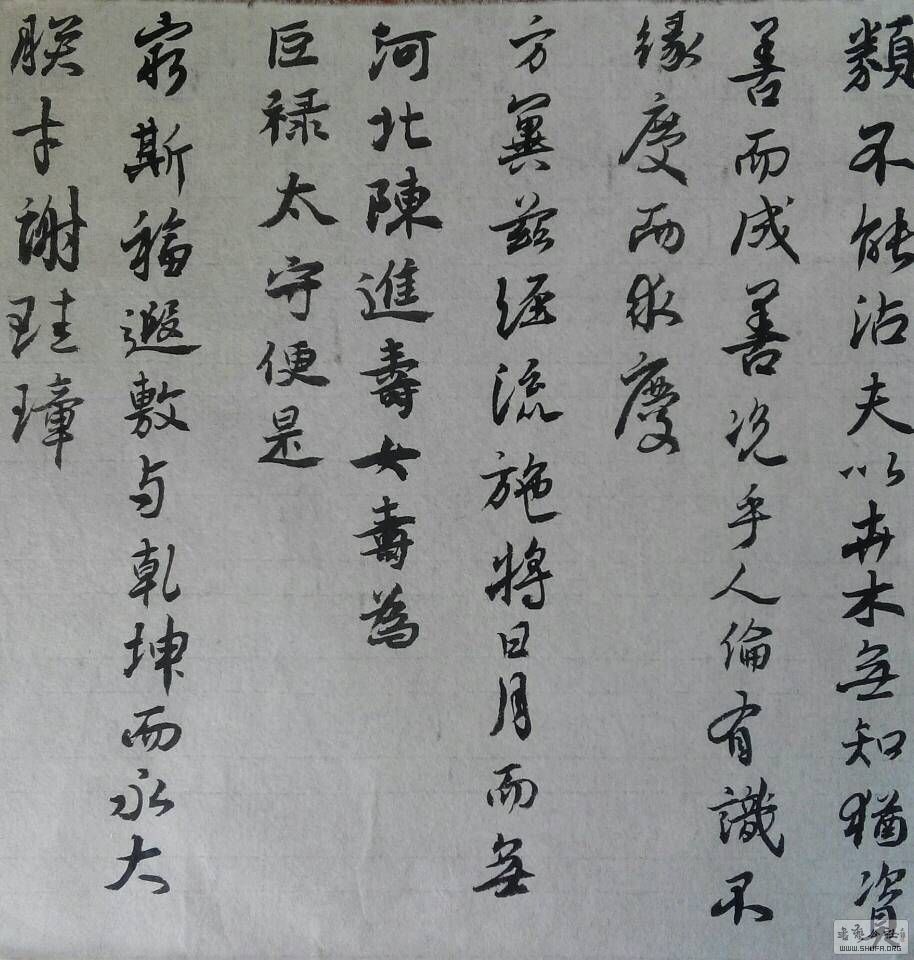 類不能沾夫以卉木無知猶資
善而成善况乎人倫有識不
緣慶而求慶
方冀茲經流施將日月而無
河北陳進壽女壽為
巨禄太守便是
窮斯福遐敷与乾坤而永大
朕才謝珪璋
WWW.SHUFA.ORG